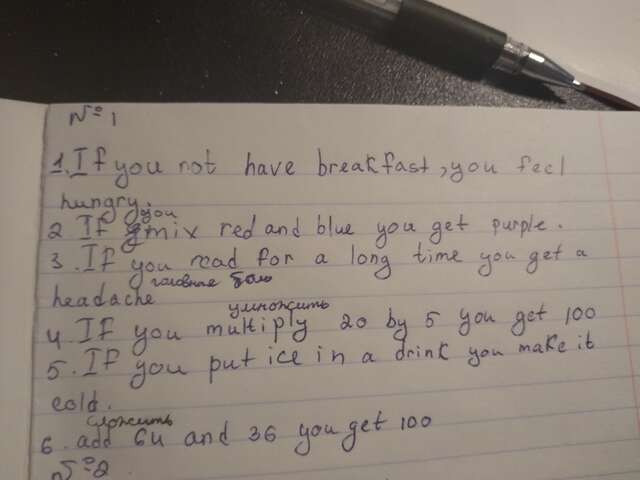 N°1
1. If you not have breakfast, you feel
hungry.
you
2 If mix red and blue you get purple.
3. If you read for a long time you get a
головная боль
headache
умножить
4. If you multiply 20 by 5 you get 100
5. If you put ice in a drink you make it
cold.
сложить
6. add 64 and 36 you get 100
N°2